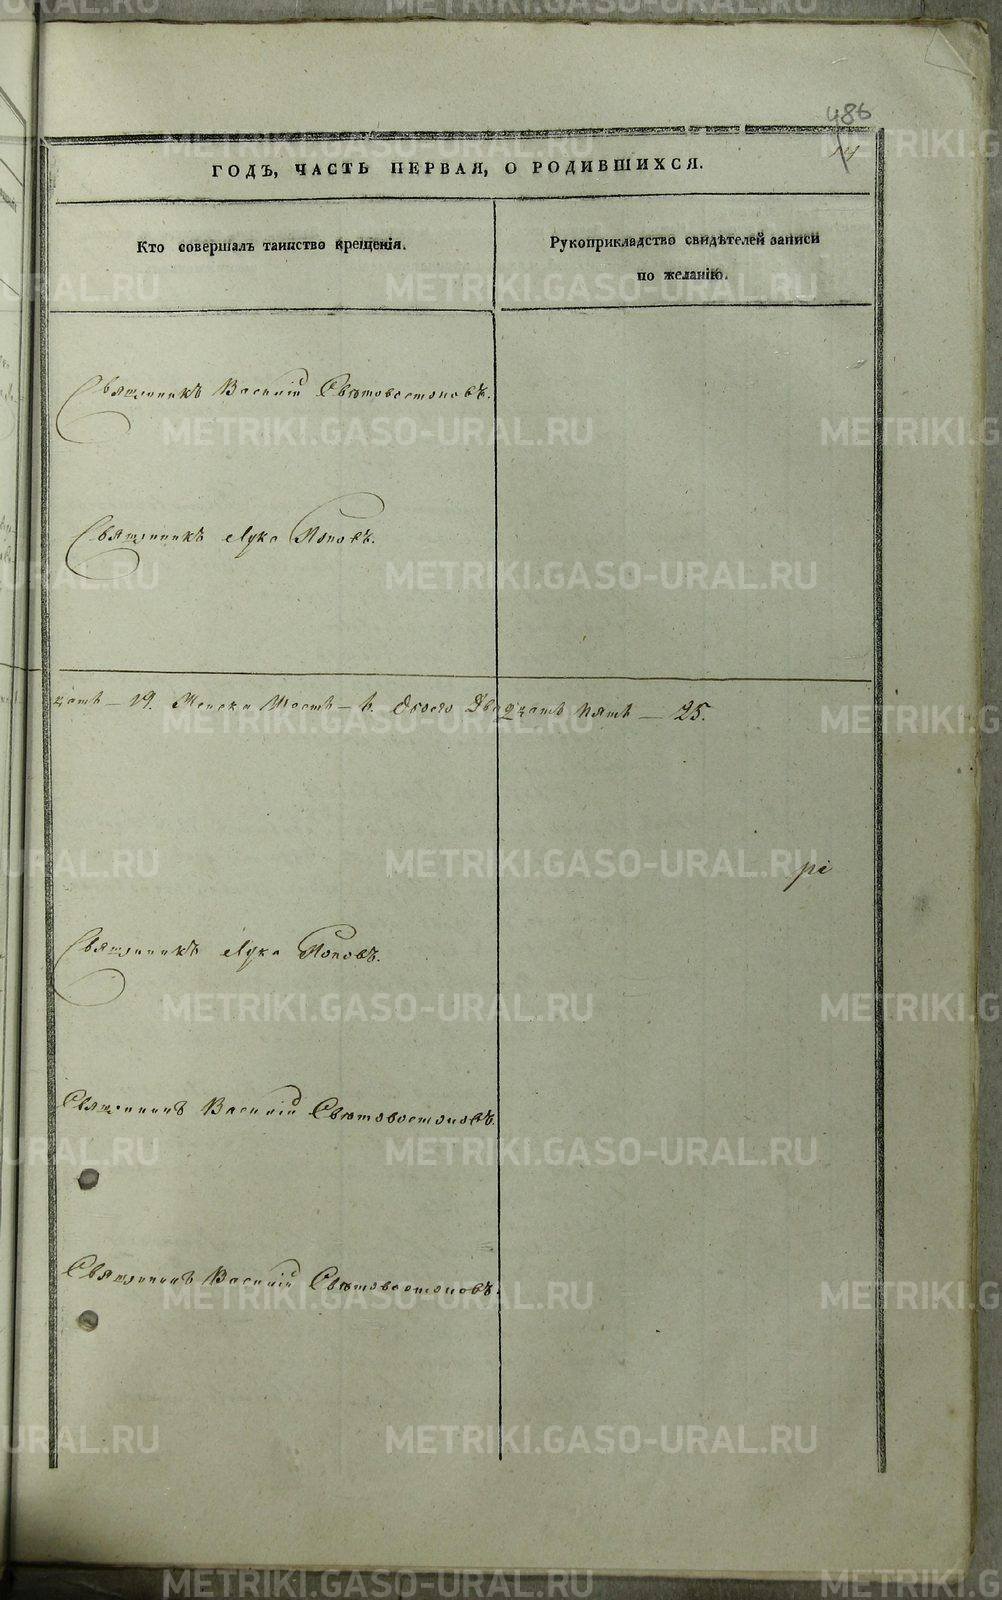 486
14
ГОДЪ, ЧАСТЬ ПЕРВАЯ, О РОДИВШИХСЯ.
Кто совершалъ таинство крещенія.
Рукоприкладство свидѣтелей записи
по желанію.
Священникъ Василій Свѣтовостоковъ.
Священникъ Лука Поповъ.
цать — 19. Женска Шесть — 6. Обоего Двадцать Пять — 25.
Священникъ Лука Поповъ.
Священникъ Василій Свѣтовостоковъ.
Священникъ Василій Свѣтовостоковъ.
METRIKI.GASO-URAL.RU